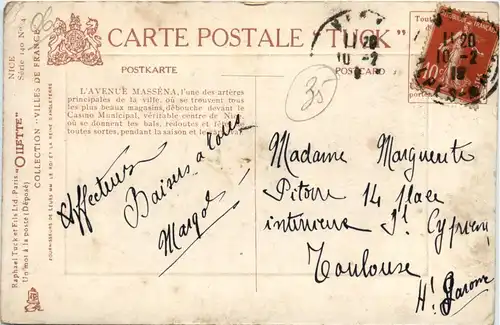 CARTE POSTALE "TUCK"
POSTKARTE
POSTCARD
NICE
Série 140 No 4
COLLECTION "VILLES DE FRANCE"
"OILETTE"
Raphael Tuck et Fils Ltd. Paris
Un mot à la poste (Déposé)
FOURNISSEURS DE LEURS MM. LE ROI ET LA REINE D'ANGLETERRE
L'AVENUE MASSÉNA, l'une des artères
principales de la ville, où se trouvent tous
les plus beaux magasins, débouche devant le
Casino Municipal, véritable centre de Nice
où se donnent les bals, redoutes et fêtes
toutes sortes, pendant la saison et le
11 20
10 - 2
11 20
10 - 2
10c
35
Affectueux
Baisers à tous
Margot
Madame Marguerite
Pitorre 14 place
intérieure St Cyprien
Toulouse
Hte Garonne